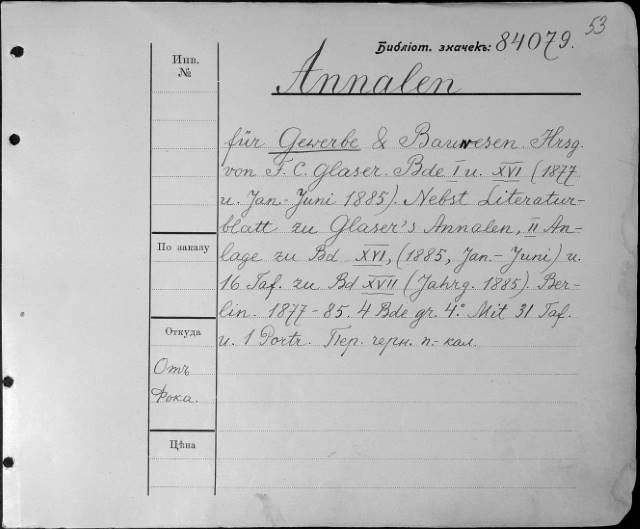 53
Библіот. значекъ: 84079.
Инв.
№
Annalen
für Gewerbe & Bauwesen. Hrsg.
von F. C. Glaser. Bde I u. XVI (1877
u. Jan-Juni 1885). Nebst Literatur-
blatt zu Glaser's Annalen, II An-
lage zu Bd XVI, (1885, Jan.-Juni) u.
16 Taf. zu Bd XVII (Jahrg. 1885). Ber-
lin. 1877-85. 4 Bde gr. 4.° Mit 31 Taf.
u. 1 Portr. Пер. черн. п.-кал.
По заказу
Откуда
Отъ
Фока.
Цѣна